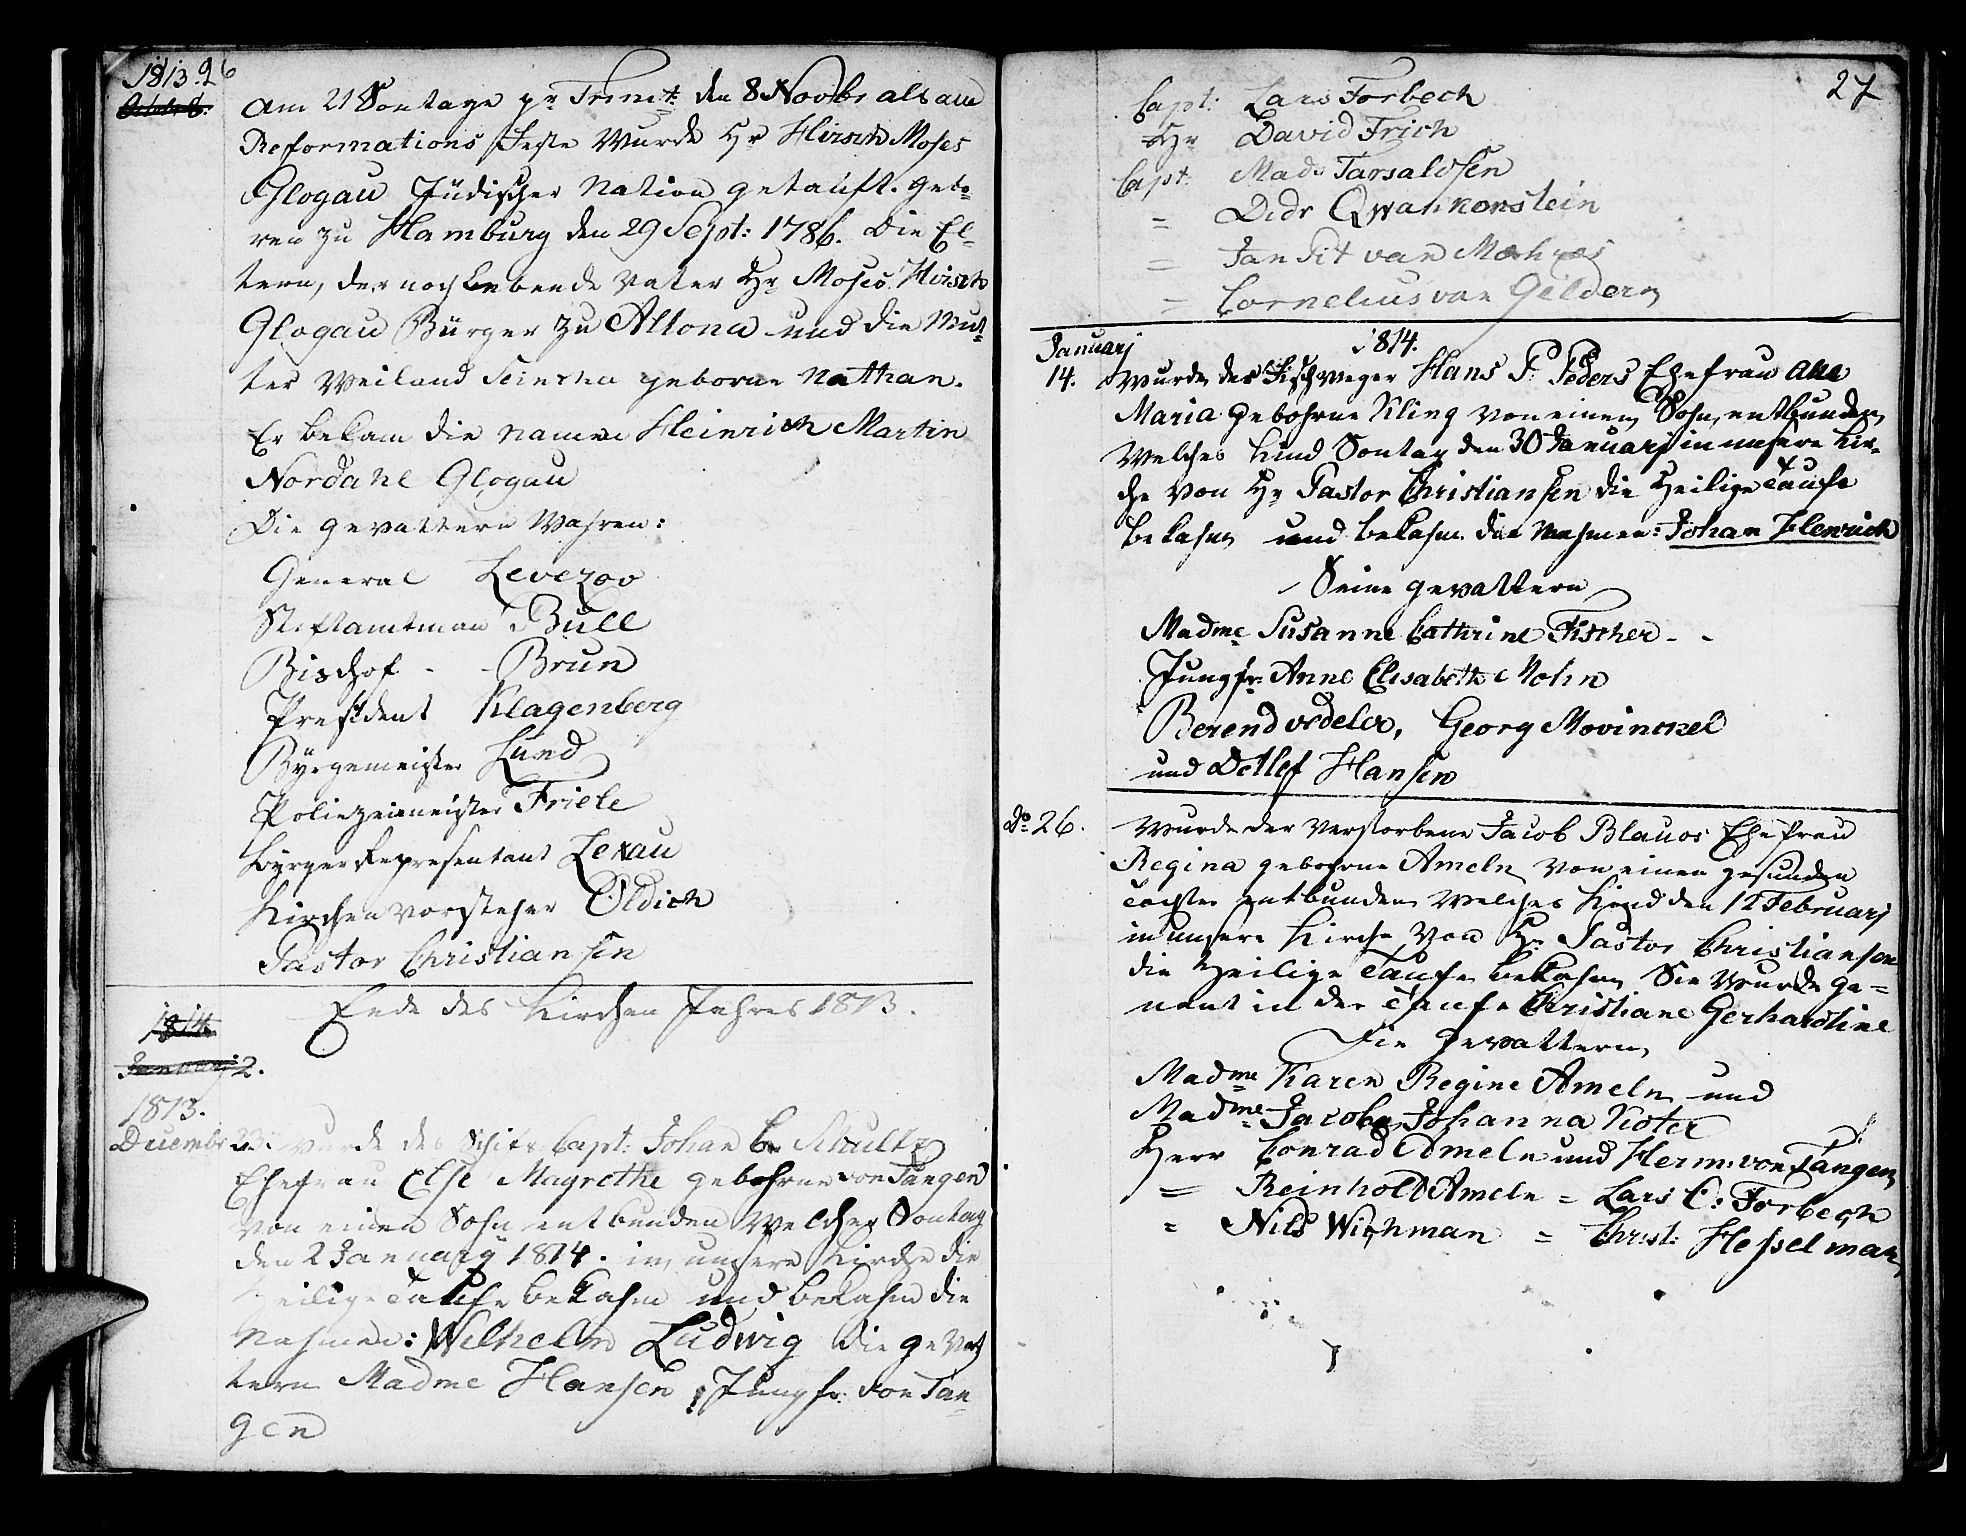 1813. 26
Am 21 Sontage pr Trinit: den 8 Novbr als am
Reformations Feste wurde Hr Hirsch Moses
Glogau Jüdischer Nation getauft. gebo-
ren zu Hamburg den 29 Sept: 1786. Die El-
tern, der noch Lebende Vater Hr Moses Hirsch
Glogau Bürger zu Altona und die Mut-
ter Weiland geborne Nathan.
Er bekam die Namen Heinrich Martin
Nordahl Glogau
Die gevattern Wahren:
General Levezov
Stiftamtman Bull
Bischof - - Brun
President Klagenberg
Byrgemeister Lund
Polizeimeister Friele
Byrger Representant Lexau
Kirchenvorsteher Oldich
Pastor Christiansen
Ende des Kirchen Jahres 1813.
1814
Januarj 2.
1813.
Decembr 23. wurde des Schifs Capt: Johan Schultz
Ehefrau Else Magrethe gebohrne von Tangen
von einen Sohn entbunden welcher Sontag
den 2 January 1814. in unsere Kirche die
Heilige Taufe bekahm und bekahm die
Nahmen: Wilhelm Ludwig die gevat
tern Madme Hansen, Jungfr: von Tan
gen
27
Capt: Lars Forbech
Hr David Frich
Capt: Mads Tarsaldsen
= Didr Qwankonstein
= Jan Tit van
= Cornelius van Geldern
1814.
Januarj
14. Wurde des Hans P. Peders Ehefrau Ane
Maria gebohrne Kling von einem Sohn, entbunden
welches Kind Sontag den 30 Januarj in unsere Kir-
che von Hr Pastor Christiansen die Heilige Taufe
bekahm und bekahm die Nahmen: Johan Henrich
Seine gevattern
Madme Susanne Cathrine Fischer - -
Jungfr: Anne Elisabeth Mohn
Berend Vedeler, Georg Movinckel
und Detlef Hansen
Do 26. Wurde der verstorbene Jacob Blauos Ehefrau
Regina gebohrne Ameln von einen gesunden
Tochter entbunden welches Kind den 12 Februarj
in unsere Kirche von Hr Pastor Christiansen
die Heilige Taufe bekahm Sie wurde ge=
nent in der Taufe Christiane Gerhardine
Die gevattern
Madme Karen Regine Ameln und
Madme Jacoba Johanna Koter
Herr Conrad Ameln und Herm: von Tangen
= Reinholt Ameln = Lars C: Forbech
= Nils Wichman = Christ: Hesselman